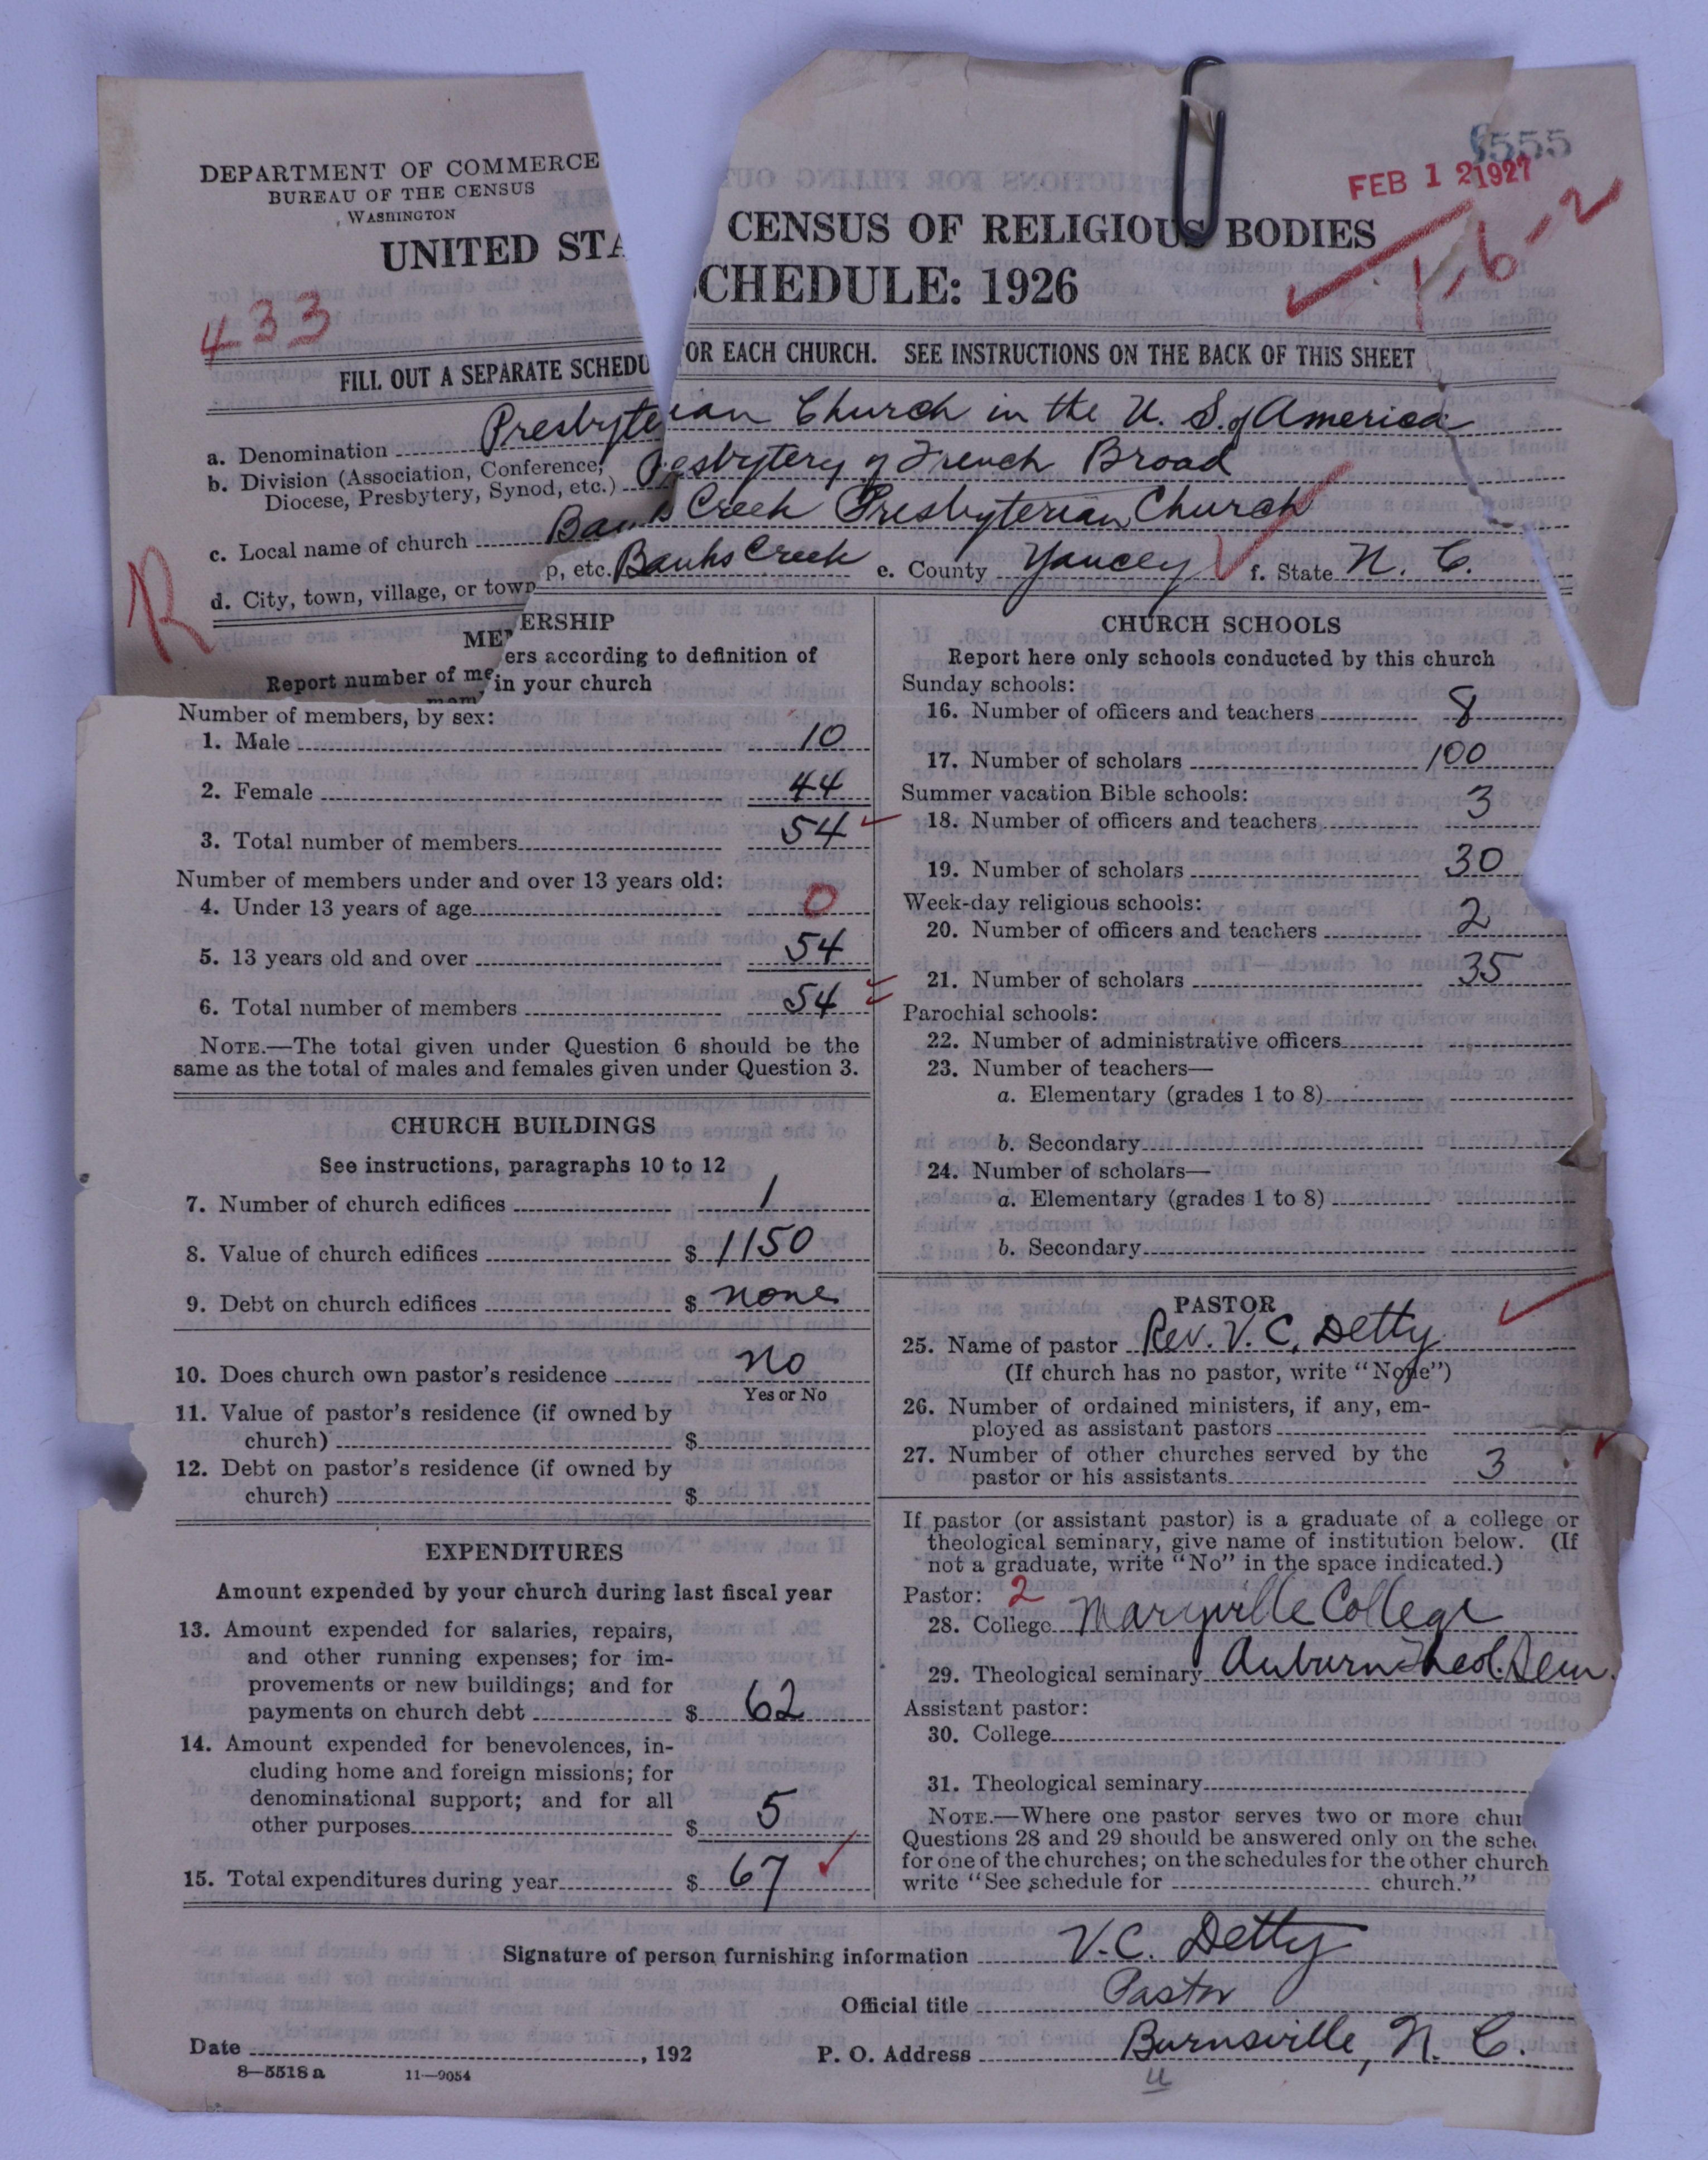 DEPARTMENT OF COMMERCE
BUREAU OF THE CENSUS
WASHINGTON
6555
FEB 12 1927
1-6-2
UNITED STA CENSUS OF RELIGIOUS BODIES
CHEDULE: 1926
433
FILL OUT A SEPARATE SCHEDU OR EACH CHURCH. SEE INSTRUCTIONS ON THE BACK OF THIS SHEET
a. Denomination Presbyterian Church in the U. S. of America
b. Division (Association, Conference, Diocese, Presbytery, Synod, etc.) Presbytery of French Broad
c. Local name of church Banks Creek Presbyterian Church
R
d. City, town, village, or town p, etc. Banks Creek e. County Yancey f. State N. C.
ME ERSHIP
Report number of me ers according to definition of
mem in your church
Number of members, by sex:
1. Male 10
2. Female 44
3. Total number of members 54
Number of members under and over 13 years old:
4. Under 13 years of age 0
5. 13 years old and over 54
6. Total number of members 54
NOTE.—The total given under Question 6 should be the
same as the total of males and females given under Question 3.
CHURCH BUILDINGS
See instructions, paragraphs 10 to 12
7. Number of church edifices 1
8. Value of church edifices $ 1150
9. Debt on church edifices $ none
10. Does church own pastor's residence No
Yes or No
11. Value of pastor's residence (if owned by
church) $
12. Debt on pastor's residence (if owned by
church) $
EXPENDITURES
Amount expended by your church during last fiscal year
13. Amount expended for salaries, repairs,
and other running expenses; for im-
provements or new buildings; and for
payments on church debt $ 62
14. Amount expended for benevolences, in-
cluding home and foreign missions; for
denominational support; and for all
other purposes $ 5
15. Total expenditures during year $ 67
CHURCH SCHOOLS
Report here only schools conducted by this church
Sunday schools:
16. Number of officers and teachers 8
17. Number of scholars 100
Summer vacation Bible schools:
18. Number of officers and teachers 3
19. Number of scholars 30
Week-day religious schools:
20. Number of officers and teachers 2
21. Number of scholars 35
Parochial schools:
22. Number of administrative officers
23. Number of teachers—
a. Elementary (grades 1 to 8)
b. Secondary
24. Number of scholars—
a. Elementary (grades 1 to 8)
b. Secondary
PASTOR
25. Name of pastor Rev. V. C. Detty
(If church has no pastor, write "None")
26. Number of ordained ministers, if any, em-
ployed as assistant pastors
27. Number of other churches served by the
pastor or his assistants 3
If pastor (or assistant pastor) is a graduate of a college or
theological seminary, give name of institution below. (If
not a graduate, write "No" in the space indicated.)
Pastor: 2
28. College Maryville College
29. Theological seminary Auburn Theol. Sem.
Assistant pastor:
30. College
31. Theological seminary
NOTE.—Where one pastor serves two or more chur
Questions 28 and 29 should be answered only on the sche
for one of the churches; on the schedules for the other church
write "See schedule for church."
Signature of person furnishing information V. C. Detty
Official title Pastor
Date , 192 P. O. Address Burnsville, N. C.
8—5518 a 11—9054
u